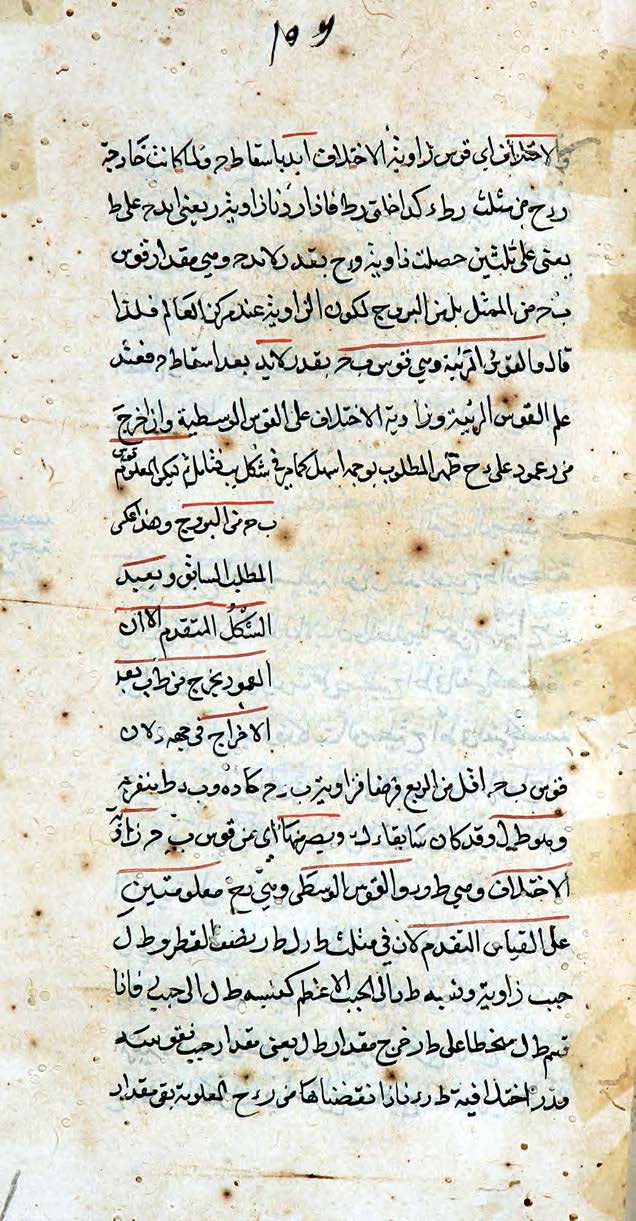 والاختلاف اي قوس زاوية الاختلاف ابدا باسقاط ح ولما كانت خارجة
رء ح من مثلث رط ء كداخلتى رط فاذا زدنا زاوية ر يعنى ا ند ح على ط
يعنى على ثلثين حصلت زاوية ء رح بقدر لا ند ح وهي مقدار قوس
ب ح من الممثل بل من البروج لكون الزاوية عند مركز العالم فلذا
قال والقوس المرئية وهي قوس ب ح بقدر لا ند بعد اسقاط ح فقد
علم القوس المرئية وزاوية الاختلاف على القوس الوسطية وان اخرج
من ر عمود على ء ح ظهر المطلوب بوجه اسهل كما مر في شكل ب فتامل ثم ليكن المعلوم قوس
ب ح من البروج وهذا عكس
المطلب السابق و نعيد
الشكل المتقدم الا ان
العمود يخرج من ط ب بعد
الاخراج في جهة ر لان
قوس ب ح اقل من الربع فرضا فزاوية ب ر ح حادة و ب ر ط منفرجة
وهو ط ل وقد كان سابقا ء ك ويصير بها اي من قوس ب ح زاوية
الاختلاف وهي ط ء ر والقوس الوسطى وهي ء ح معلومتين
على القياس المتقدم لان في مثلث ط ر ل ط ر نصف القطر و ط ل
جيب زاوية ر ونسبة ط ر الى الجيب الاعظم كنسبة ط ل الى جيب ر فاذا
قسم ط ل منحطا على ط ر خرج مقدار ط ل يعنى مقدار جيب نقوسه
وقدر اختلافية ط ء ر فاذا نقضناها من ر ء ح المعلومة بقى مقدار